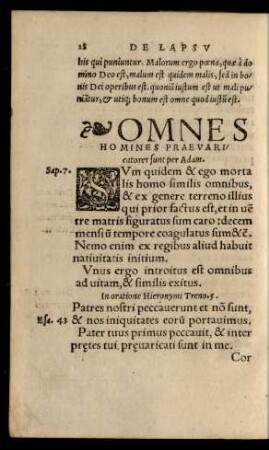 28 DE LAPSV
his qui puniuntur. Malorum ergo pœna, quæ à do
mino Deo est, malum est quidem malis, sed in bo-
nis Dei operibus est. quoniā iustum est ut mali pu-
niātur, & utiq; bonum est omne quod iustū est.
OMNES
HOMINES PRAEVARI/
catores sunt per Adam.
Sap. 7. SVm quidem & ego morta
lis homo similis omnibus,
& ex genere terreno illius
qui prior factus est, et in uē
tre matris figuratus sum caro: decem
mensiū tempore coagulatus sum &c.
Nemo enim ex regibus aliud habuit
natiuitatis initium.
Vnus ergo introitus est omnibus
ad uitam, & similis exitus.
In oratione Hieronymi Treno. 5.
Patres nostri peccauerunt et nō sunt,
Esa. 43 & nos iniquitates eorū portauimus.
Pater tuus primus peccauit, & inter
pretes tui præuaricati sunt in me.
Cor